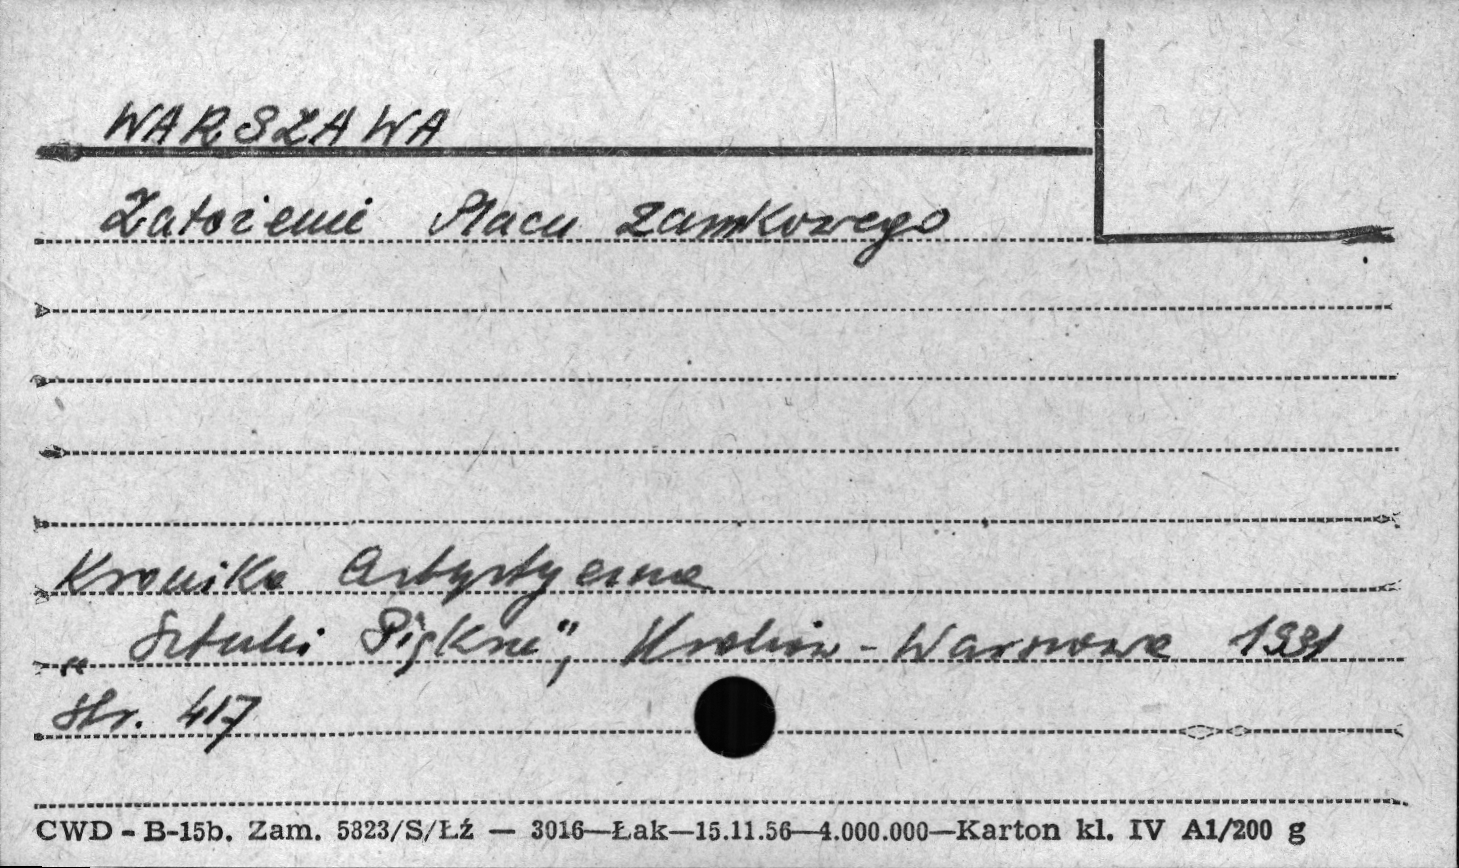 WARSZAWA
Założenie Placu Zamkowego
Kronika Artystyczna
„Sztuki Piękne", Kraków - Warszawa 1931
str. 417
CWD - B-15b. Zam. 5823/S/Łź — 3016—Łak—15.11.56—4.000.000—Karton kl. IV A1/200 g